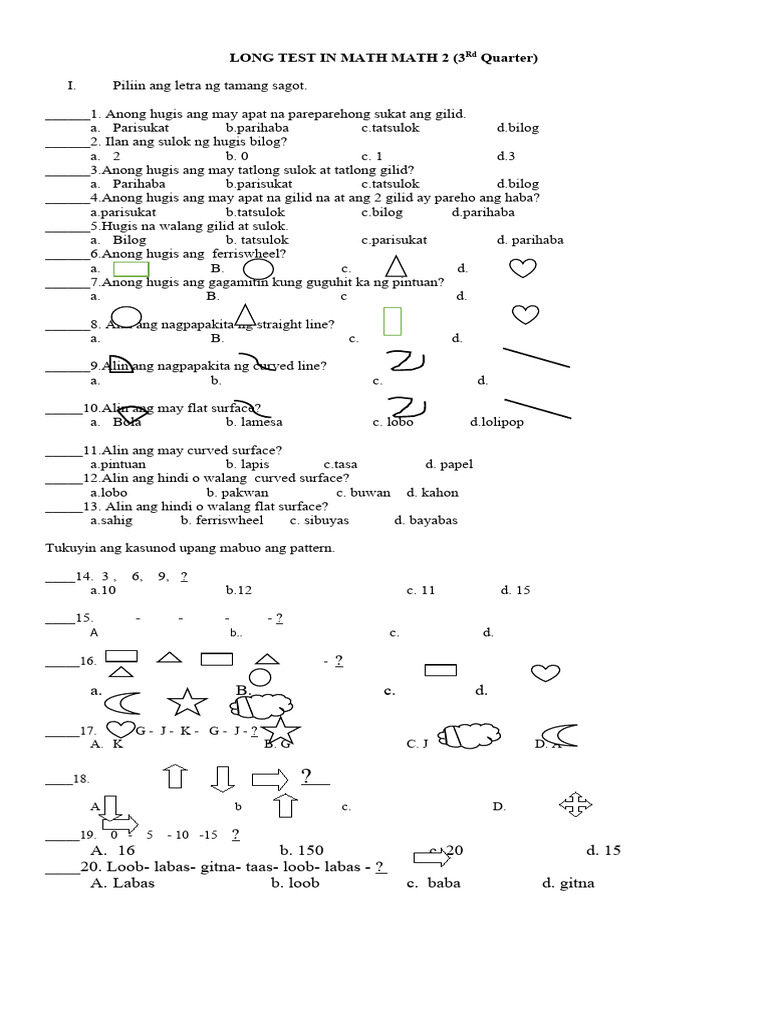 LONG TEST IN MATH MATH 2 (3Rd Quarter)
I. Piliin ang letra ng tamang sagot.
______1. Anong hugis ang may apat na pareparehong sukat ang gilid.
a. Parisukat b.parihaba c.tatsulok d.bilog
______2. Ilan ang sulok ng hugis bilog?
a. 2 b. 0 c. 1 d.3
______3.Anong hugis ang may tatlong sulok at tatlong gilid?
a. Parihaba b.parisukat c.tatsulok d.bilog
______4.Anong hugis ang may apat na gilid na at ang 2 gilid ay pareho ang haba?
a.parisukat b.tatsulok c.bilog d.parihaba
______5.Hugis na walang gilid at sulok.
a. Bilog b. tatsulok c.parisukat d. parihaba
______6.Anong hugis ang ferriswheel?
a. B. c. d.
______7.Anong hugis ang gagamitin kung guguhit ka ng pintuan?
a. B. c d.
______8. Alin ang nagpapakita ng straight line?
a. B. c. d.
______9.Alin ang nagpapakita ng curved line?
a. b. c. d.
_____10.Alin ang may flat surface?
a. Bola b. lamesa c. lobo d.lolipop
_____11.Alin ang may curved surface?
a.pintuan b. lapis c.tasa d. papel
_____12.Alin ang hindi o walang curved surface?
a.lobo b. pakwan c. buwan d. kahon
_____13. Alin ang hindi o walang flat surface?
a.sahig b. ferriswheel c. sibuyas d. bayabas
Tukuyin ang kasunod upang mabuo ang pattern.
____14. 3 , 6, 9, ?
a.10 b.12 c. 11 d. 15
____15. - - - - ?
A b.. c. d.
_____16. - ?
a. B. c. d.
_____17. G - J - K - G - J - ?
A. K B. G C. J D. A
____18. ?
A b c. D.
____19. 0 - 5 - 10 -15 ?
A. 16 b. 150 c. 20 d. 15
____20. Loob- labas- gitna- taas- loob- labas - ?
A. Labas b. loob c. baba d. gitna